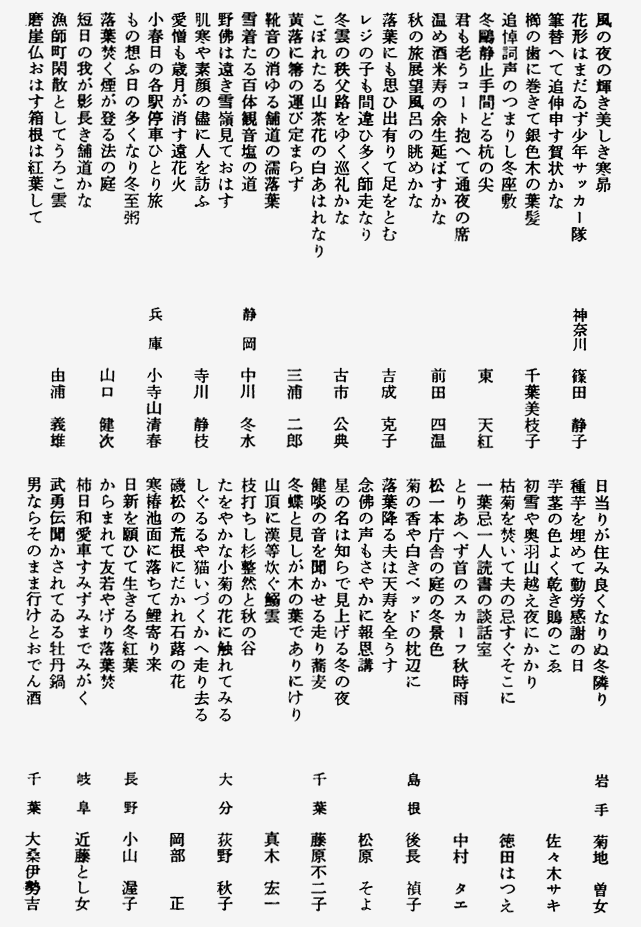 風の夜の輝き美しき寒昴
花形はまだゐず少年サッカー隊 神奈川 篠田 静子
筆替へて追伸申す賀状かな
櫛の歯に巻きて銀色木の葉髪 千葉美枝子
追悼詞声のつまりし冬座敷
冬鷗静止手間どる杭の尖 東 天紅
君も老うコート抱へて通夜の席
温め酒米寿の余生延ばすかな 前田 四温
秋の旅展望風呂の眺めかな
落葉にも思ひ出有りて足をとむ 吉成 克子
レジの子も間違ひ多く師走なり
冬雲の秩父路をゆく巡礼かな 古市 公典
こぼれたる山茶花の白あはれなり
黄落に箒の運び定まらず 三浦 二郎
靴音の消ゆる舗道の濡落葉
雪着たる百体観音塩の道 静岡 中川 冬水
野佛は遠き雪嶺見ておはす
肌寒や素顔の儘に人を訪ふ 寺川 静枝
愛憎も歳月が消す遠花火
小春日の各駅停車ひとり旅 兵庫 小寺山清春
もの想ふ日の多くなり冬至粥
落葉焚く煙が登る法の庭 山口 健次
短日の我が影長き舗道かな
漁師町閑散としてうろこ雲 由浦 義雄
磨崖仏おはす箱根は紅葉して
日当りが住み良くなりぬ冬隣り 岩手 菊地 曽女
種芋を埋めて勤労感謝の日
芋茎の色よく乾き鵙のこゑ 佐々木サキ
初雪や奥羽山越え夜にかかり
枯菊を焚いて夫の忌すぐそこに 徳田はつえ
一葉忌一人読書の談話室
とりあへず首のスカーフ秋時雨 中村 タエ
松一本庁舎の庭の冬景色
菊の香や白きベッドの枕辺に 島根 後長 禎子
落葉降る夫は天寿を全うす
念佛の声もさやかに報恩講 松原 そよ
星の名は知らで見上げる冬の夜
健啖の音を聞かせる走り蕎麦 千葉 藤原不二子
冬蝶と見しが木の葉でありにけり
山頂に漢等炊ぐ鰯雲 真木 宏一
枝打ちし杉整然と秋の谷
たをやかな小菊の花に触れてみる 大分 荻野 秋子
しぐるるや猫いづくかへ走り去る
磯松の荒根にだかれ石蕗の花 岡部 正
寒椿池面に落ちて鯉寄り来
日新を願ひて生きる冬紅葉 長野 小山 渥子
からまれて友若やげり落葉焚
柿日和愛車すみずみまでみがく 岐阜 近藤とし女
武勇伝聞かされてゐる牡丹鍋
男ならそのまま行けとおでん酒 千葉 大桑伊勢吉